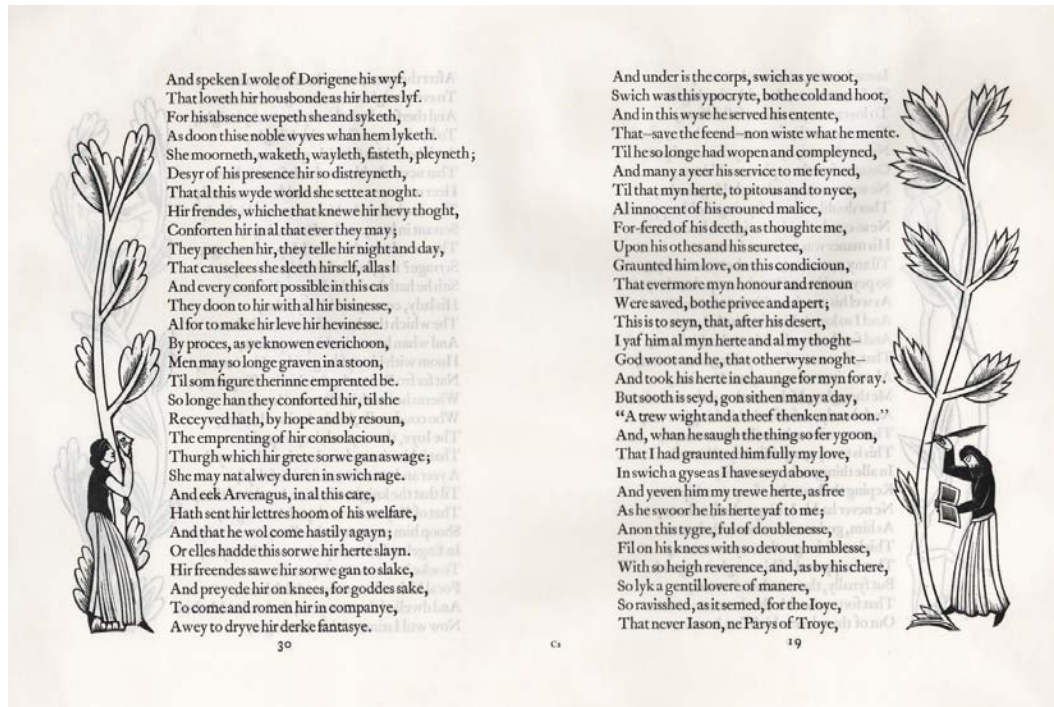 And speken I wole of Dorigene his wyf,
That loveth hir housbonde as hir hertes lyf.
For his absence wepeth she and syketh,
As doon thise noble wyves whan hem lyketh.
She moorneth, waketh, wayleth, fasteth, pleyneth;
Desyr of his presence hir so distreyneth,
That al this wyde world she sette at noght.
Hir frendes, whiche that knewe hir hevy thoght,
Conforten hir in al that ever they may;
They prechen hir, they telle hir night and day,
That causelees she sleeth hirself, allas!
And every confort possible in this cas
They doon to hir with al hir bisinesse,
Al for to make hir leve hir hevinesse.
By proces, as ye knowen everichoon,
Men may so longe graven in a stoon,
Til som figure therinne emprented be.
So longe han they conforted hir, til she
Receyved hath, by hope and by resoun,
The emprenting of hir consolacioun,
Thurgh which hir grete sorwe gan aswage;
She may nat alwey duren in swich rage.
And eek Arveragus, in al this care,
Hath sent hir lettres hoom of his welfare,
And that he wol come hastily agayn;
Or elles hadde this sorwe hir herte slayn.
Hir freendes sawe hir sorwe gan to slake,
And preyede hir on knees, for goddes sake,
To come and romen hir in companye,
Awey to dryve hir derke fantasye.
30
And under is the corps, swich as ye woot,
Swich was this ypocryte, bothe cold and hoot,
And in this wyse he served his entente,
That—save the feend—non wiste what he mente.
Til he so longe had wopen and compleyned,
And many a yeer his service to me feyned,
Til that myn herte, to pitous and to nyce,
Al innocent of his crouned malice,
For-fered of his deeth, as thoughte me,
Upon his othes and his seuretee,
Graunted him love, on this condicioun,
That evermore myn honour and renoun
Were saved, bothe privee and apert;
This is to seyn, that, after his desert,
I yaf him al myn herte and al my thoght—
God woot and he, that otherwyse noght—
And took his herte in chaunge for myn for ay.
But sooth is seyd, gon sithen many a day,
“A trew wight and a theef thenken nat oon.”
And, whan he saugh the thing so fer ygoon,
That I had graunted him fully my love,
In swich a gyse as I have seyd above,
And yeven him my trewe herte, as free
As he swoor he his herte yaf to me;
Anon this tygre, ful of doublenesse,
Fil on his knees with so devout humblesse,
With so heigh reverence, and, as by his chere,
So lyk a gentil lovere of manere,
So ravisshed, as it semed, for the Ioye,
That never Iason, ne Parys of Troye,
C2
19